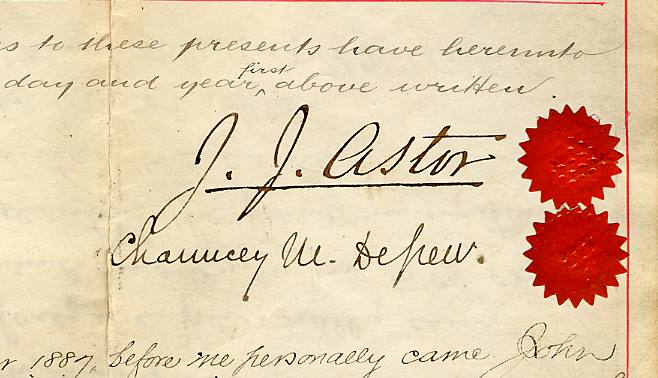 s to these presents have hereunto
day and year first above written.
J. J. Astor
Chauncey M. Depew.
r 1887, before me personally came John